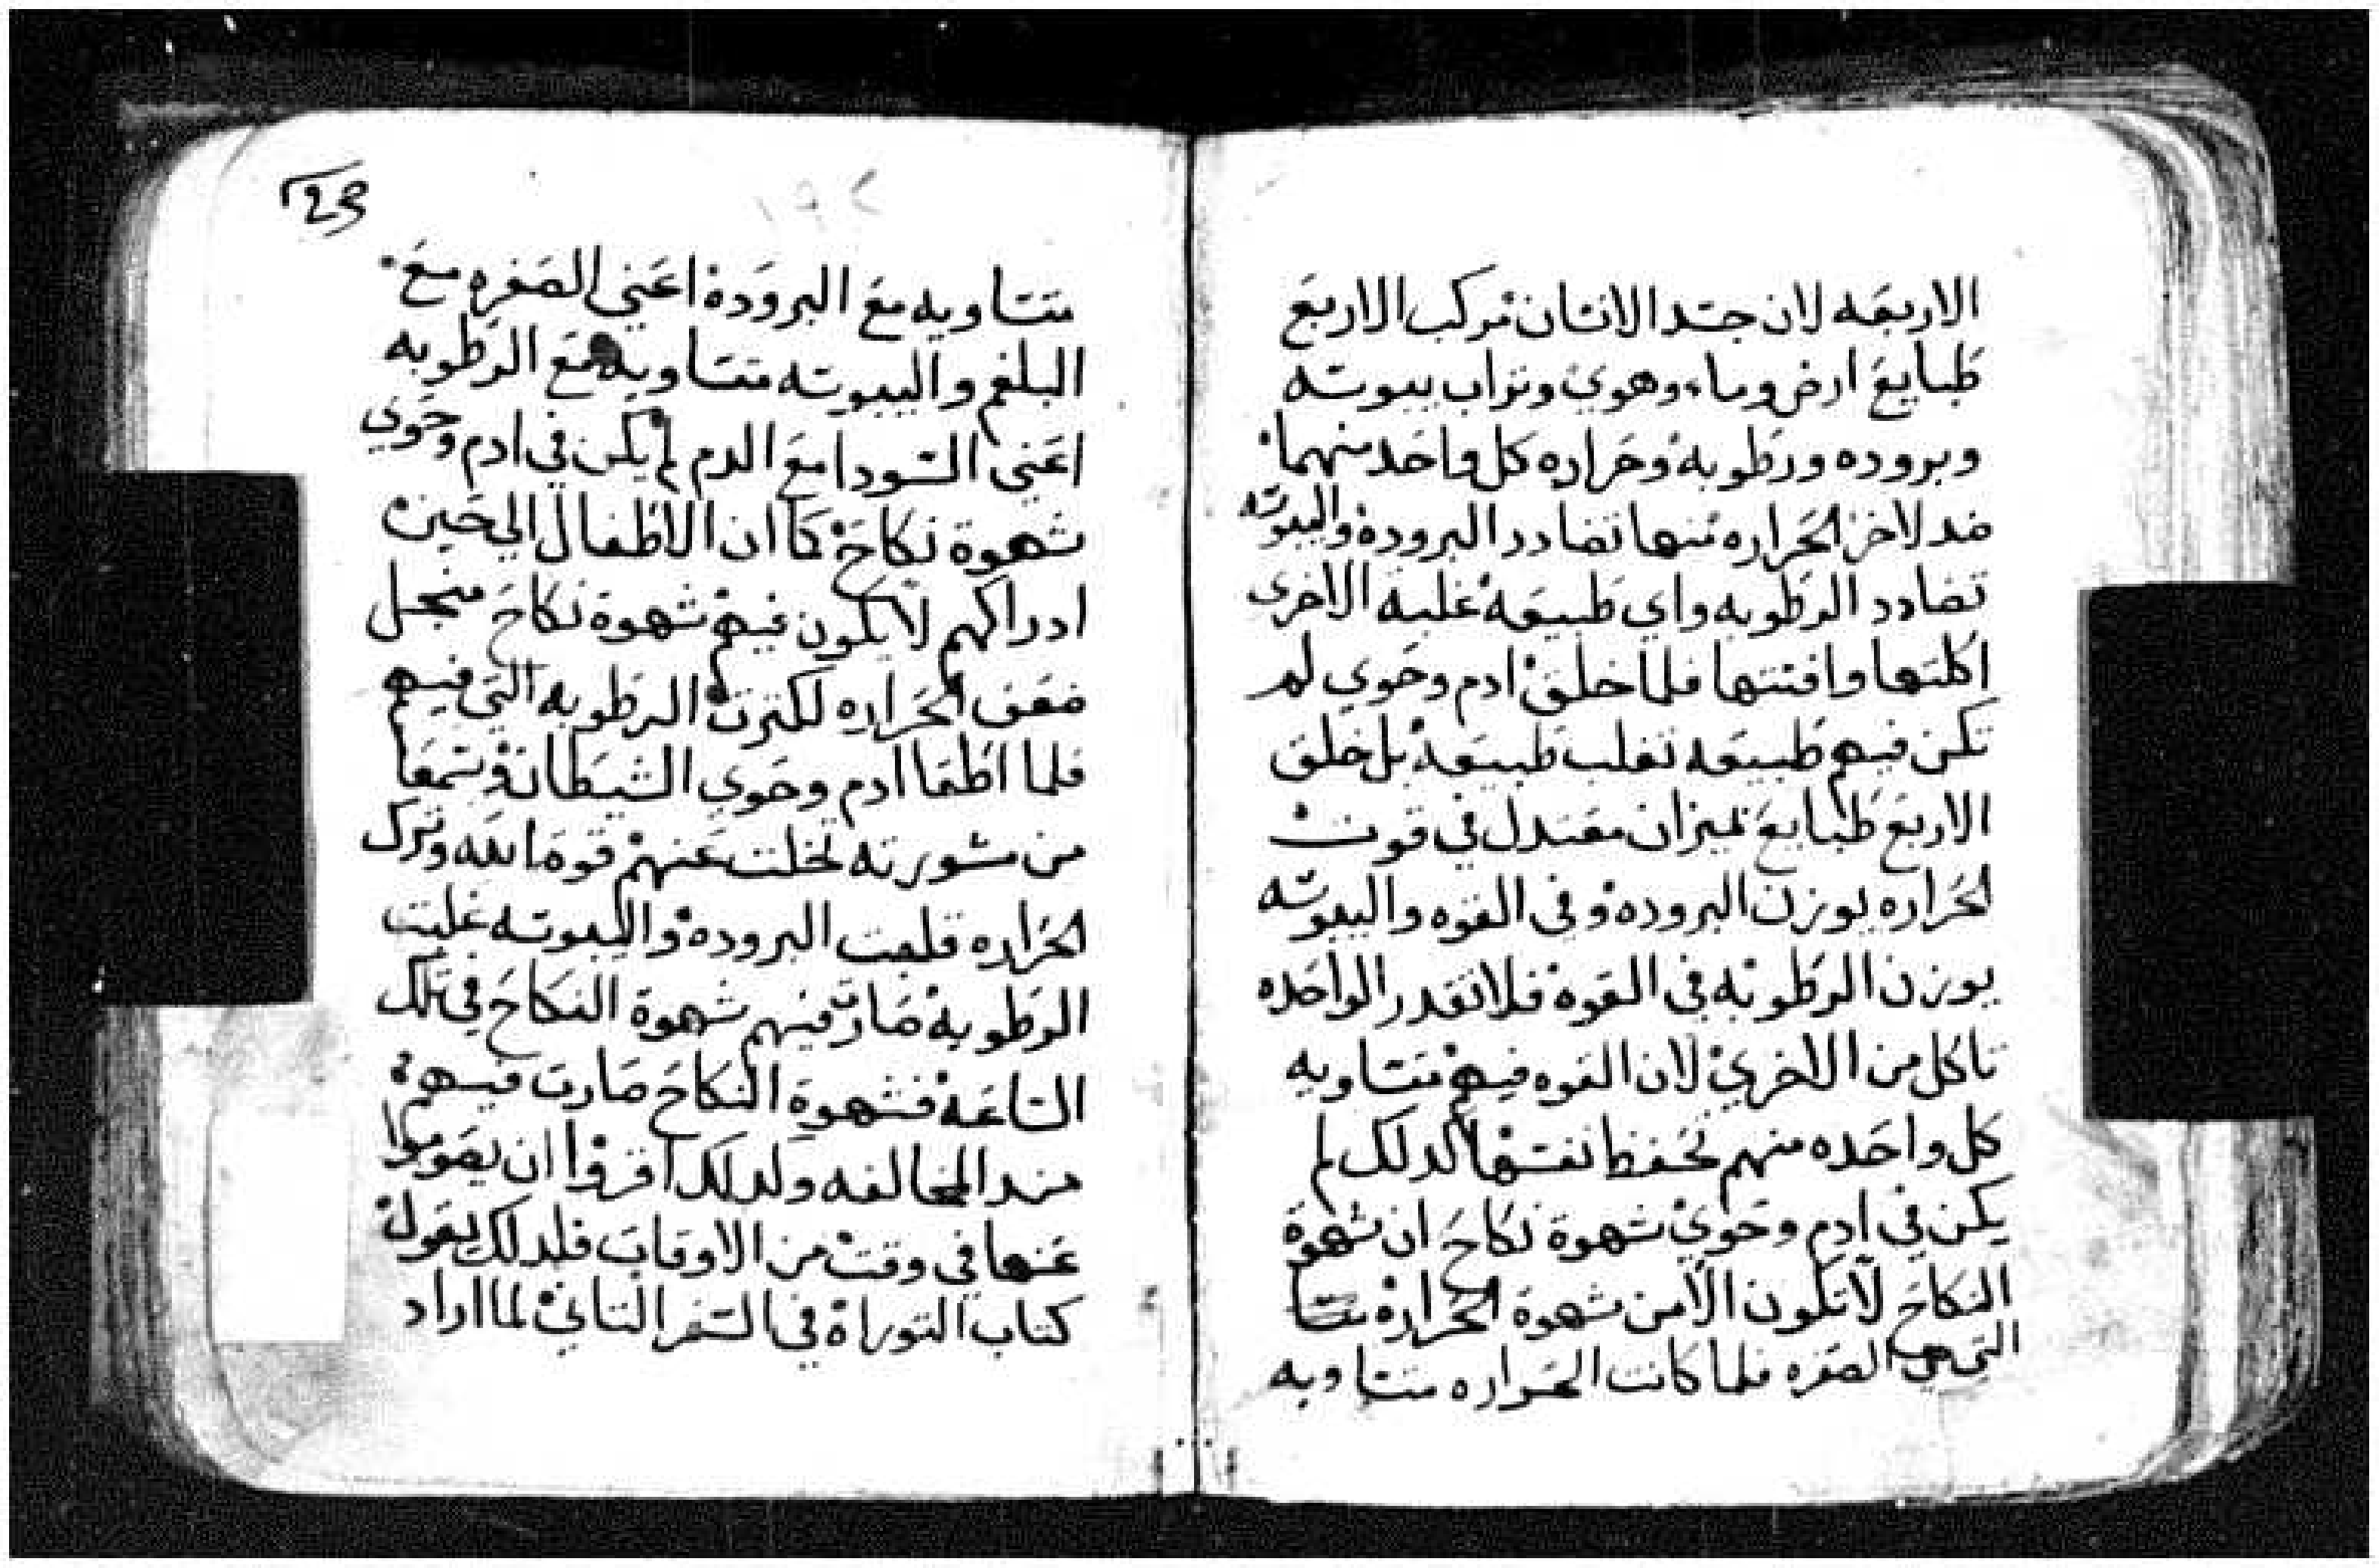 الاربعه لان جسد الانسان مركب الاربع
طبايع ارض وماء وهوي وتراب يبوسه
وبروده ورطوبه وحراره كل واحد منهما
ضد لاخر الحراره منها تضادد البروده واليبوسه
تضادد الرطوبه واي طبيعه غلبة الاخرى
اكلتها وافنتها فلما خلق ادم وحوي لم
تكن فيهم طبيعه تغلب طبيعه بل خلق
الاربع طبايع بميزان معتدل في قوت
الحراره يوزن البروده وفي القوه واليبوسه
يوزن الرطوبه في القوه فلا تقدر الواحده
تاكل من الاخري لان القوه فيهم متساويه
كل واحده منهم تحفظ نفسها لدلك لم
يكن في ادم وحوي شهوة نكاح ان شهوة
النكاح لا تكون الا من شهوة الحراره
التي هي الصفره فلما كانت الحراره متساويه
29
١٩٢
متساويه مع البروده اعني الصفره مع
البلغم واليبوسه متساويه مع الرطوبه
اعني السودا مع الدم لم يكن في ادم وحوي
شهوة نكاح كما ان الاطفال الي حين
ادراكهم لا يكون فيهم شهوة نكاح منجل
ضعف الحراره لكترت الرطوبه التي فيهم
فلما اطغا ادم وحوي الشيطان وسمعا
من مشورته تخلت عنهم قوة الله وترك
الحراره قلعت البروده واليبوسه غلبت
الرطوبه صارت فيهم شهوة النكاح في تلك
الساعه فشهوة النكاح صارت فيهم
مند المخالفه ولدلك افرزوا ان يقوموا
عنها في وقت من الاوقات فلدلك يقول
كتاب التوراة في السفر التاني لما اراد